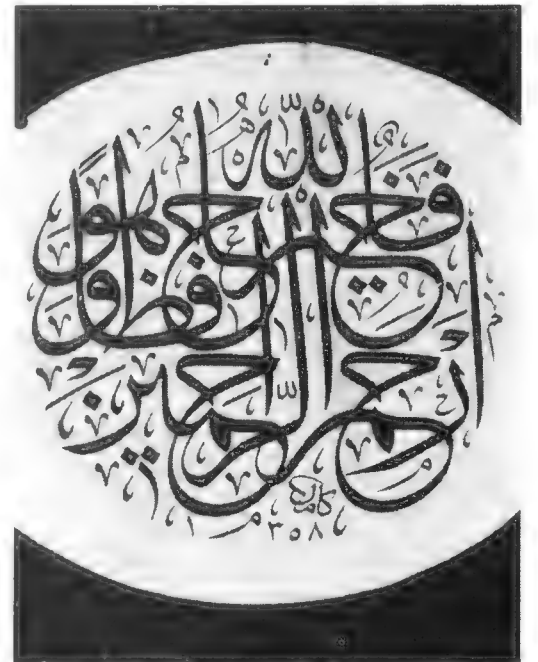 فالله خير حافظا وهو
ارحم الراحمين
١٣٥٨